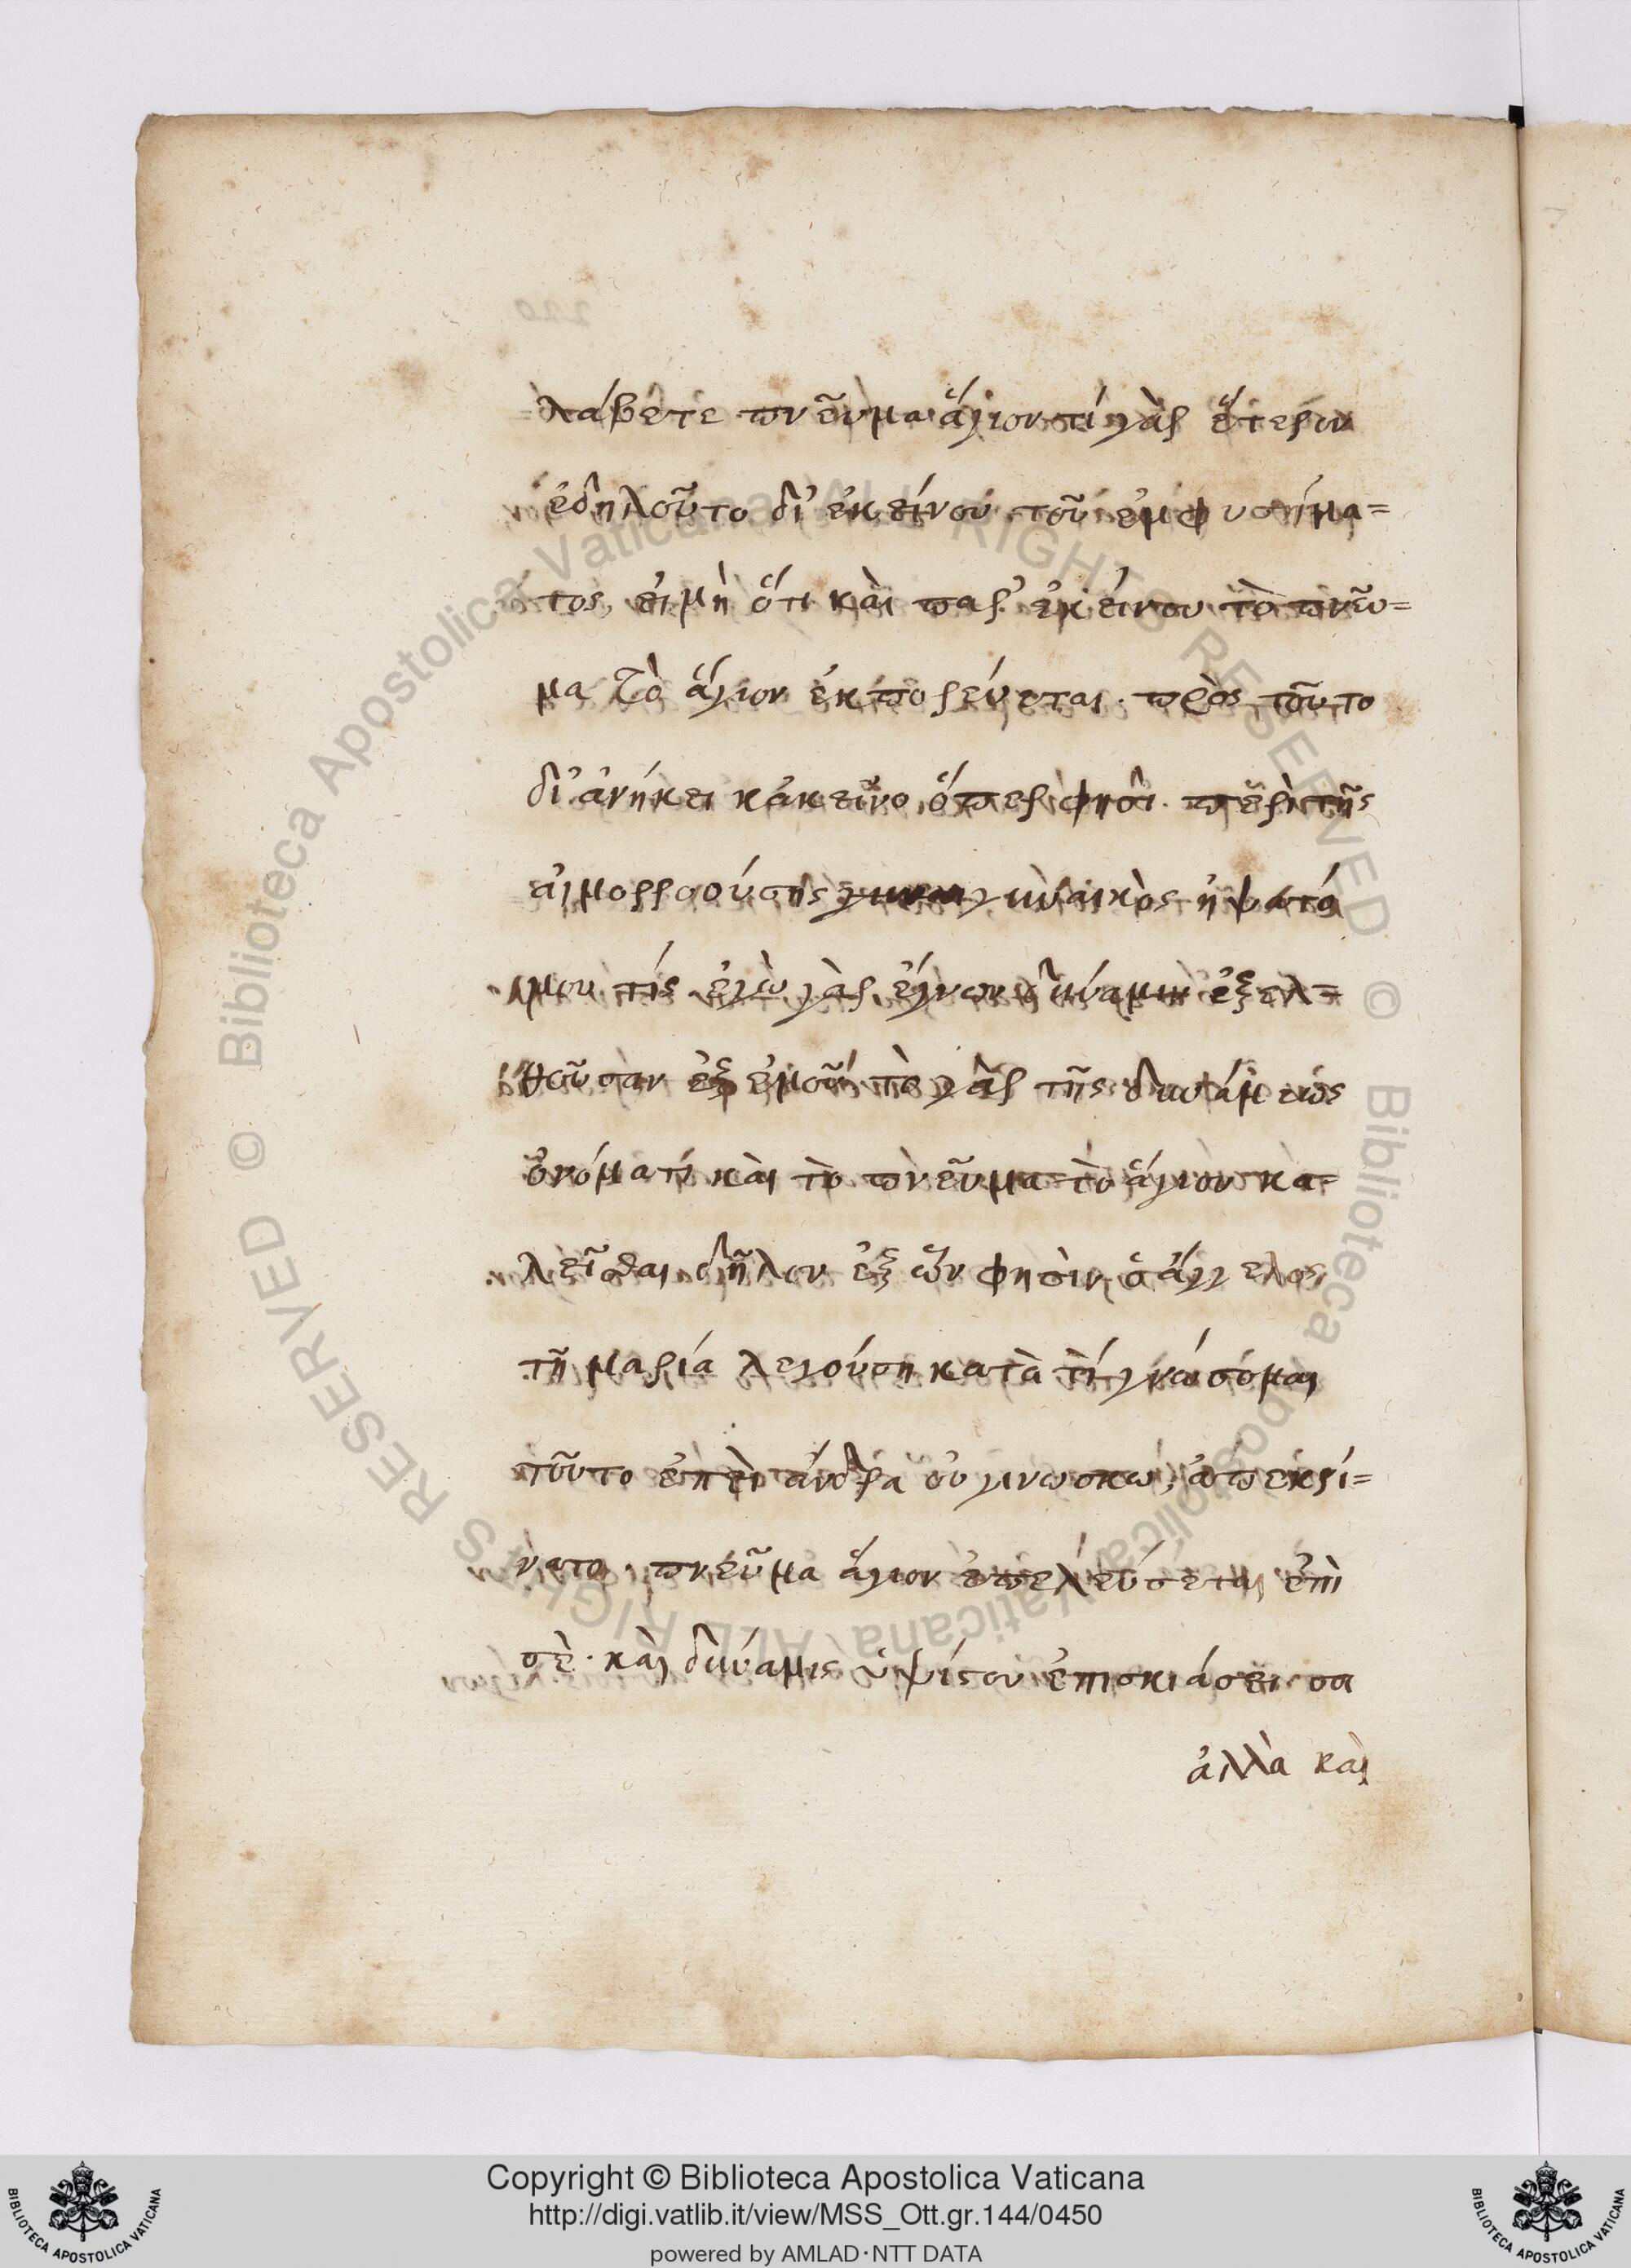 λάβετε πνεῦμα ἅγιον τί γὰρ ἕτερον
ἐδηλοῦτο δι' ἐκείνου τοῦ ἐμφυσήμα=
τος, εἰ μὴ ὅτι καὶ παρ' ἐκείνου τὸ πνεῦ=
μα τὸ ἅγιον ἐκπορεύεται. πρὸς τοῦτο
δι' ἀνήκει κἀκεῖνο, ὅπερ φησὶ. περὶ τῆς
αἱμορροούσης γυναικὸς ἥψατό
μου τίς ἐγὼ γὰρ ἔγνων δύναμιν ἐξελ=
θοῦσαν ἐξ ἐμοῦ τὸ γὰρ τῆς δυνάμεως
ὀνόματι καὶ τὸ πνεῦμα τὸ ἅγιον κα=
λεῖσθαι δῆλον ἐξ ὧν φησὶν ὁ ἄγγελος
τῇ μαρία λεγούση κατὰ τί γνώσομαι
τοῦτο ἐπεὶ ἄνδρα οὐ γινωσκω, ἀπεκρί=
νατο. πνεῦμα ἅγιον ἐπελεύσεται ἐπὶ
σὲ. καὶ δύναμις ὑψίστου ἐπισκιάσει σοι
ἀλλὰ καὶ
Copyright © Biblioteca Apostolica Vaticana
http://digi.vatlib.it/view/MSS_Ott.gr.144/0450
powered by AMLAD·NTT DATA